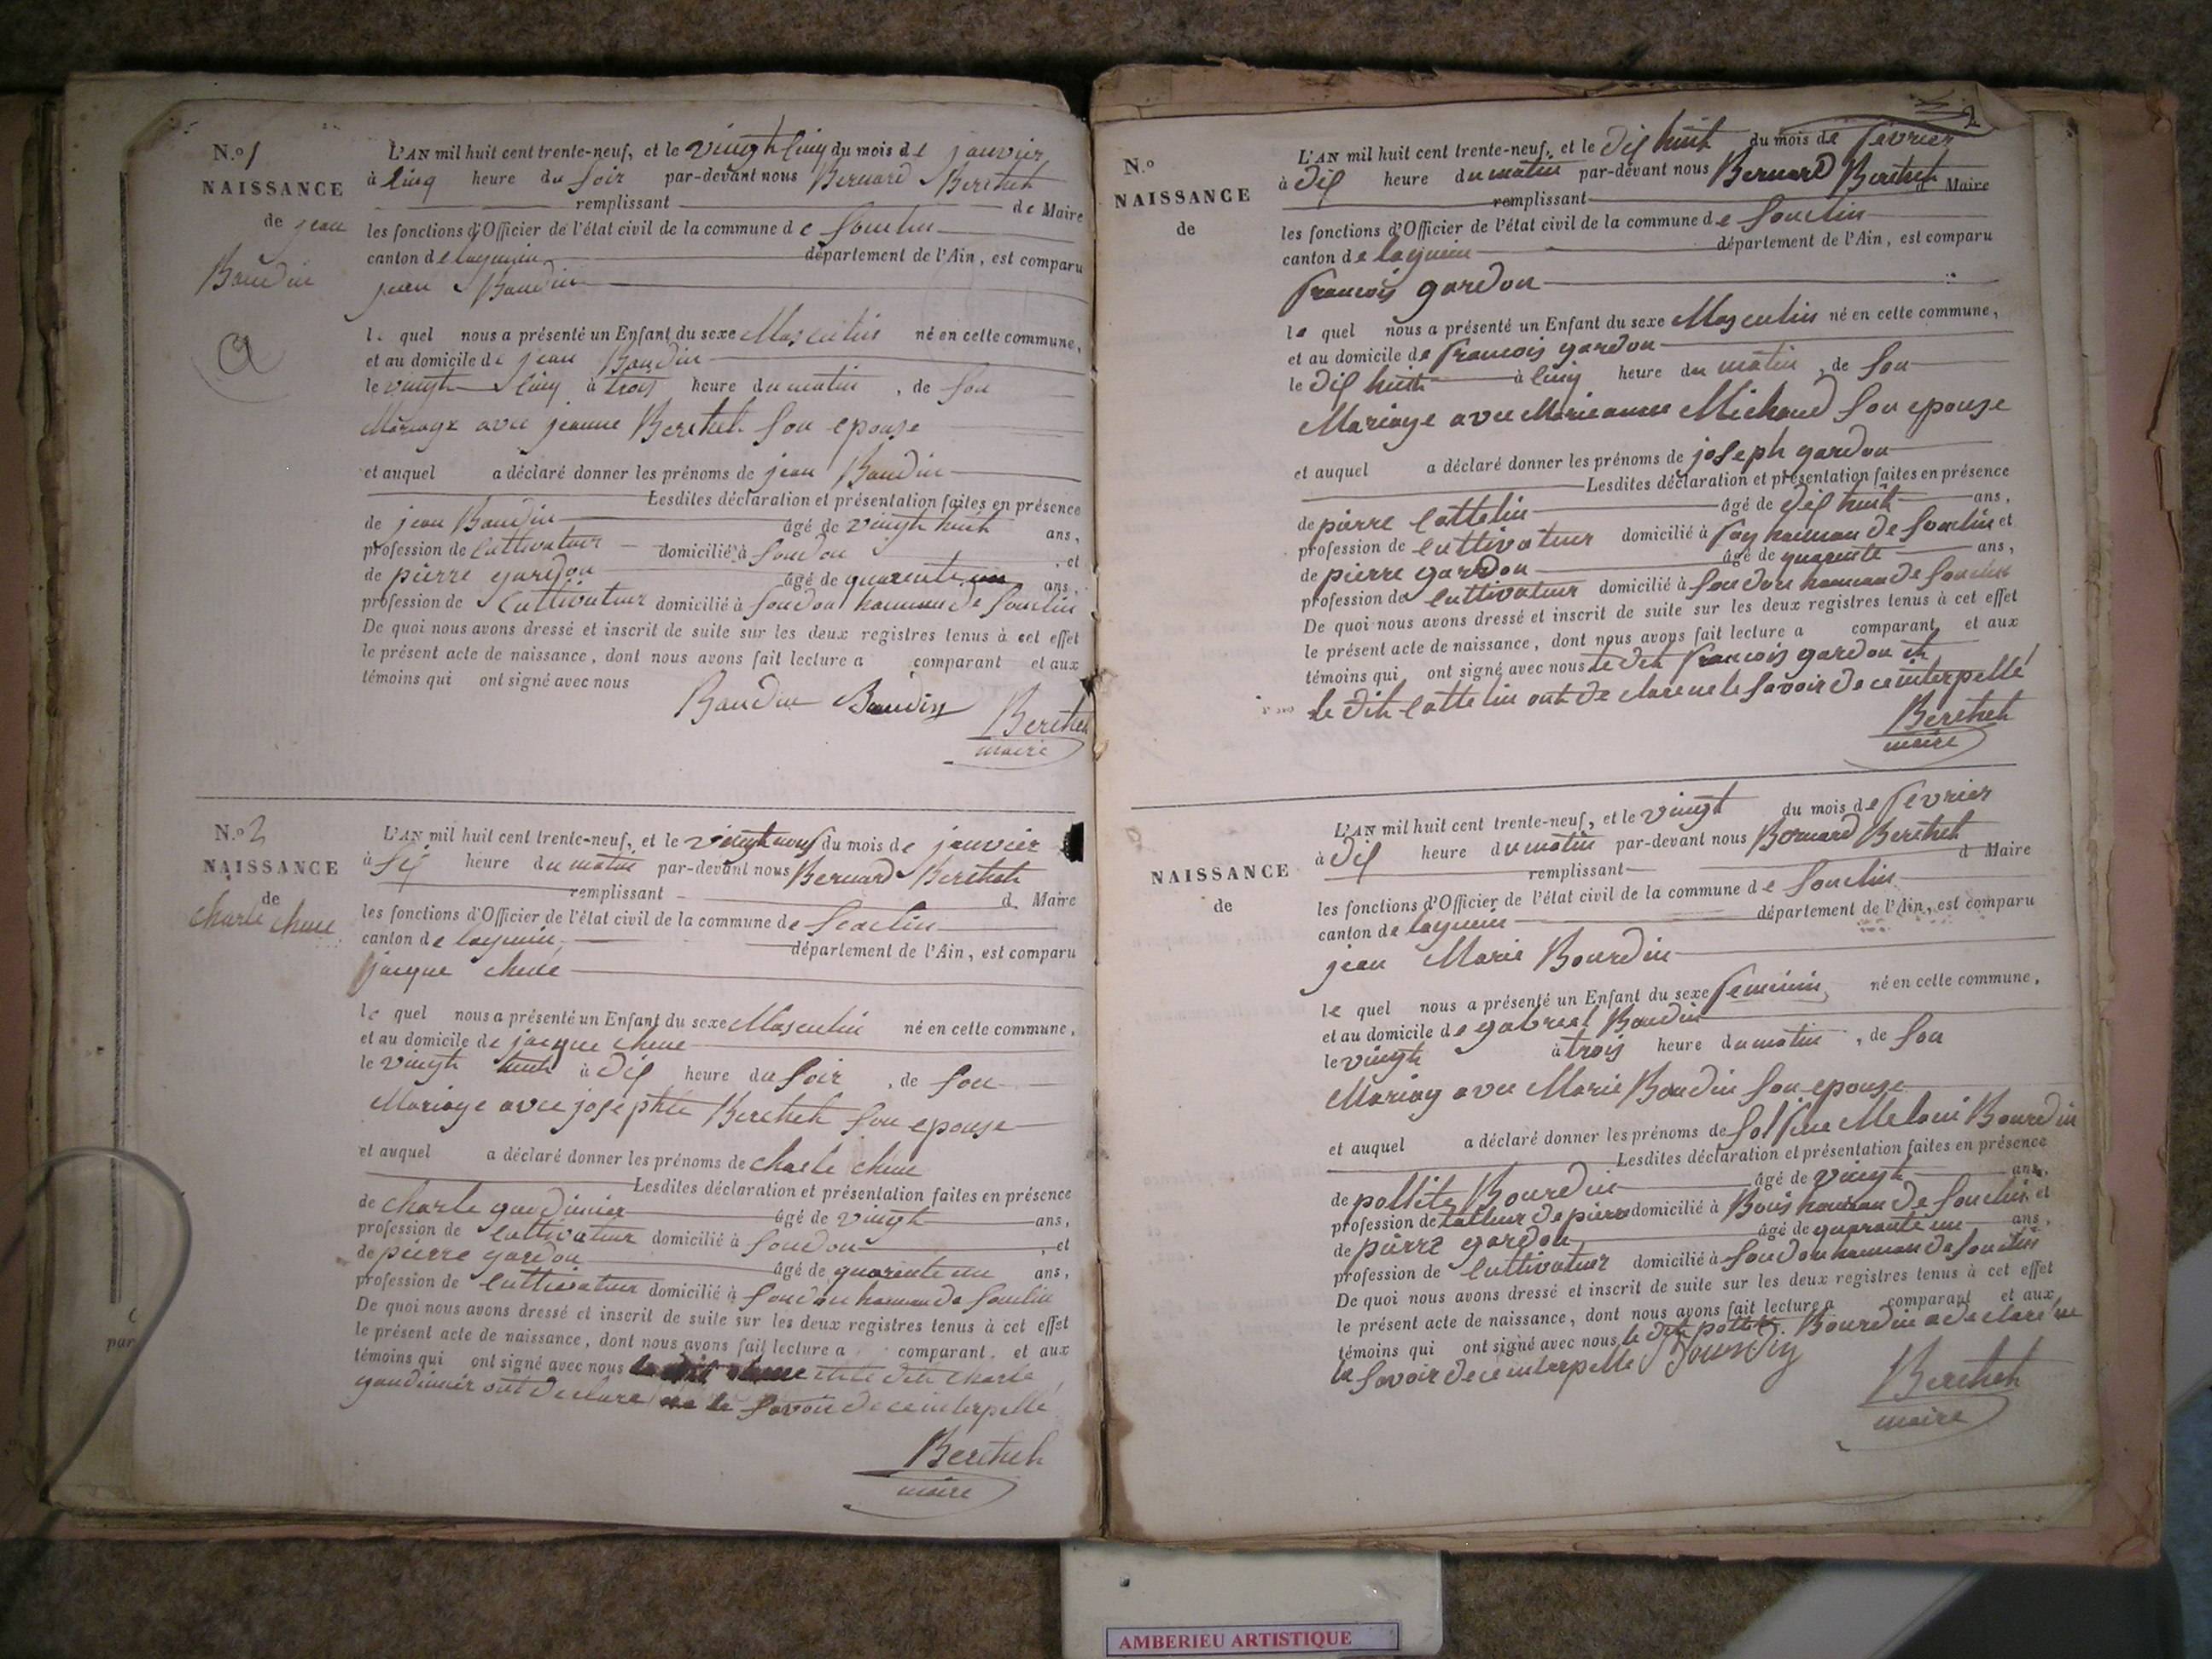 N.o 1
NAISSANCE
de jean
Baudin
L'AN mil huit cent trente-neuf, et le vingt cinq du mois de janvier
à cinq heure du soir par-devant nous Bernard Berthet
remplissant de Maire
les fonctions d'Officier de l'état civil de la commune de Souclin
canton de lagnieu département de l'Ain, est comparu
jean Baudin
le quel nous a présenté un Enfant du sexe Masculin né en cette commune,
et au domicile de jean Baudin
le vingt cinq à trois heure du matin, de son
Mariage avec jeanne Berthet son epouse
et auquel a déclaré donner les prénoms de jean Baudin
Lesdites déclaration et présentation faites en présence
de jean Baudin âgé de vingt huit ans,
profession de cultivateur domicilié à Soudon, et
de pierre gardon âgé de quarente un ans,
profession de cultivateur domicilié à Soudon hameau de Souclin
De quoi nous avons dressé et inscrit de suite sur les deux registres tenus à cet effet
le présent acte de naissance, dont nous avons fait lecture a comparant et aux
témoins qui ont signé avec nous
Baudin Baudin
Berthet
maire
N.o 2
NAISSANCE
de
charle chene
L'AN mil huit cent trente-neuf, et le vingt neuf du mois de janvier
à sij heure du matin par-devant nous Bernard Berthet
remplissant d Maire
les fonctions d'Officier de l'état civil de la commune de Souclin
canton de lagnieu département de l'Ain, est comparu
jacque chene
le quel nous a présenté un Enfant du sexe Masculin né en cette commune,
et au domicile de jacque chene
le vingt huit à dij heure du soir, de son
Mariage avec josephte Berthet son epouse
et auquel a déclaré donner les prénoms de charle chene
Lesdites déclaration et présentation faites en présence
de charle gaudinier âgé de vingt ans,
profession de cultivateur domicilié à Soudon, et
de pierre gardon âgé de quarente un ans,
profession de cultivateur domicilié à Soudon hameau de Souclin
De quoi nous avons dressé et inscrit de suite sur les deux registres tenus à cet effet
le présent acte de naissance, dont nous avons fait lecture a comparant et aux
témoins qui ont signé avec nous dit charle
gaudinier ont declare ne le savoir de ce interpellé
Berthet
maire
2
N.o
NAISSANCE
de
L'AN mil huit cent trente-neuf, et le dij huit du mois de fevrier
à dij heure du matin par-devant nous Bernard Berthet
remplissant d Maire
les fonctions d'Officier de l'état civil de la commune de Souclin
canton de lagnieu département de l'Ain, est comparu
francois gardon
le quel nous a présenté un Enfant du sexe Masculin né en cette commune,
et au domicile de francois gardon
le dij huit à cinq heure du matin, de son
Mariage avec Marieanne Michaud son epouse
et auquel a déclaré donner les prénoms de joseph gardon
Lesdites déclaration et présentation faites en présence
de pierre Cattelin âgé de dij huit ans,
profession de cultivateur domicilié à fay hameau de Souclin et
de pierre gardon âgé de quarente ans,
profession de cultivateur domicilié à Soudon hameau de Souclin
De quoi nous avons dressé et inscrit de suite sur les deux registres tenus à cet effet
le présent acte de naissance, dont nous avons fait lecture a comparant et aux
témoins qui ont signé avec nous le dit francois gardon et
le dit Cattelin ont de clare ne le savoir de ce interpellé
Berthet
maire
NAISSANCE
de
L'AN mil huit cent trente-neuf, et le vingt du mois de fevrier
à dij heure du matin par-devant nous Bernard Berthet
remplissant d Maire
les fonctions d'Officier de l'état civil de la commune de Souclin
canton de lagnieu département de l'Ain, est comparu
jean Marie Bourdin
le quel nous a présenté un Enfant du sexe feminin né en cette commune,
et au domicile de gabriel Baudin
le vingt à trois heure du matin, de son
Mariag avec Marie Baudin son epouse
et auquel a déclaré donner les prénoms de Melani Bourdin
Lesdites déclaration et présentation faites en présence
de pollite Bourdin âgé de vingt ans,
profession de tailleur de pierre domicilié à Bois hameau de Souclin et
de pierre gardon âgé de quarante un ans,
profession de cultivateur domicilié à Soudon hameau de Souclin
De quoi nous avons dressé et inscrit de suite sur les deux registres tenus à cet effet
le présent acte de naissance, dont nous avons fait lecture a comparant et aux
témoins qui ont signé avec nous le dit pollite Bourdin a declaré ne
le savoir de ce interpelle Bourdin
Berthet
maire
par
AMBERIEU ARTISTIQUE